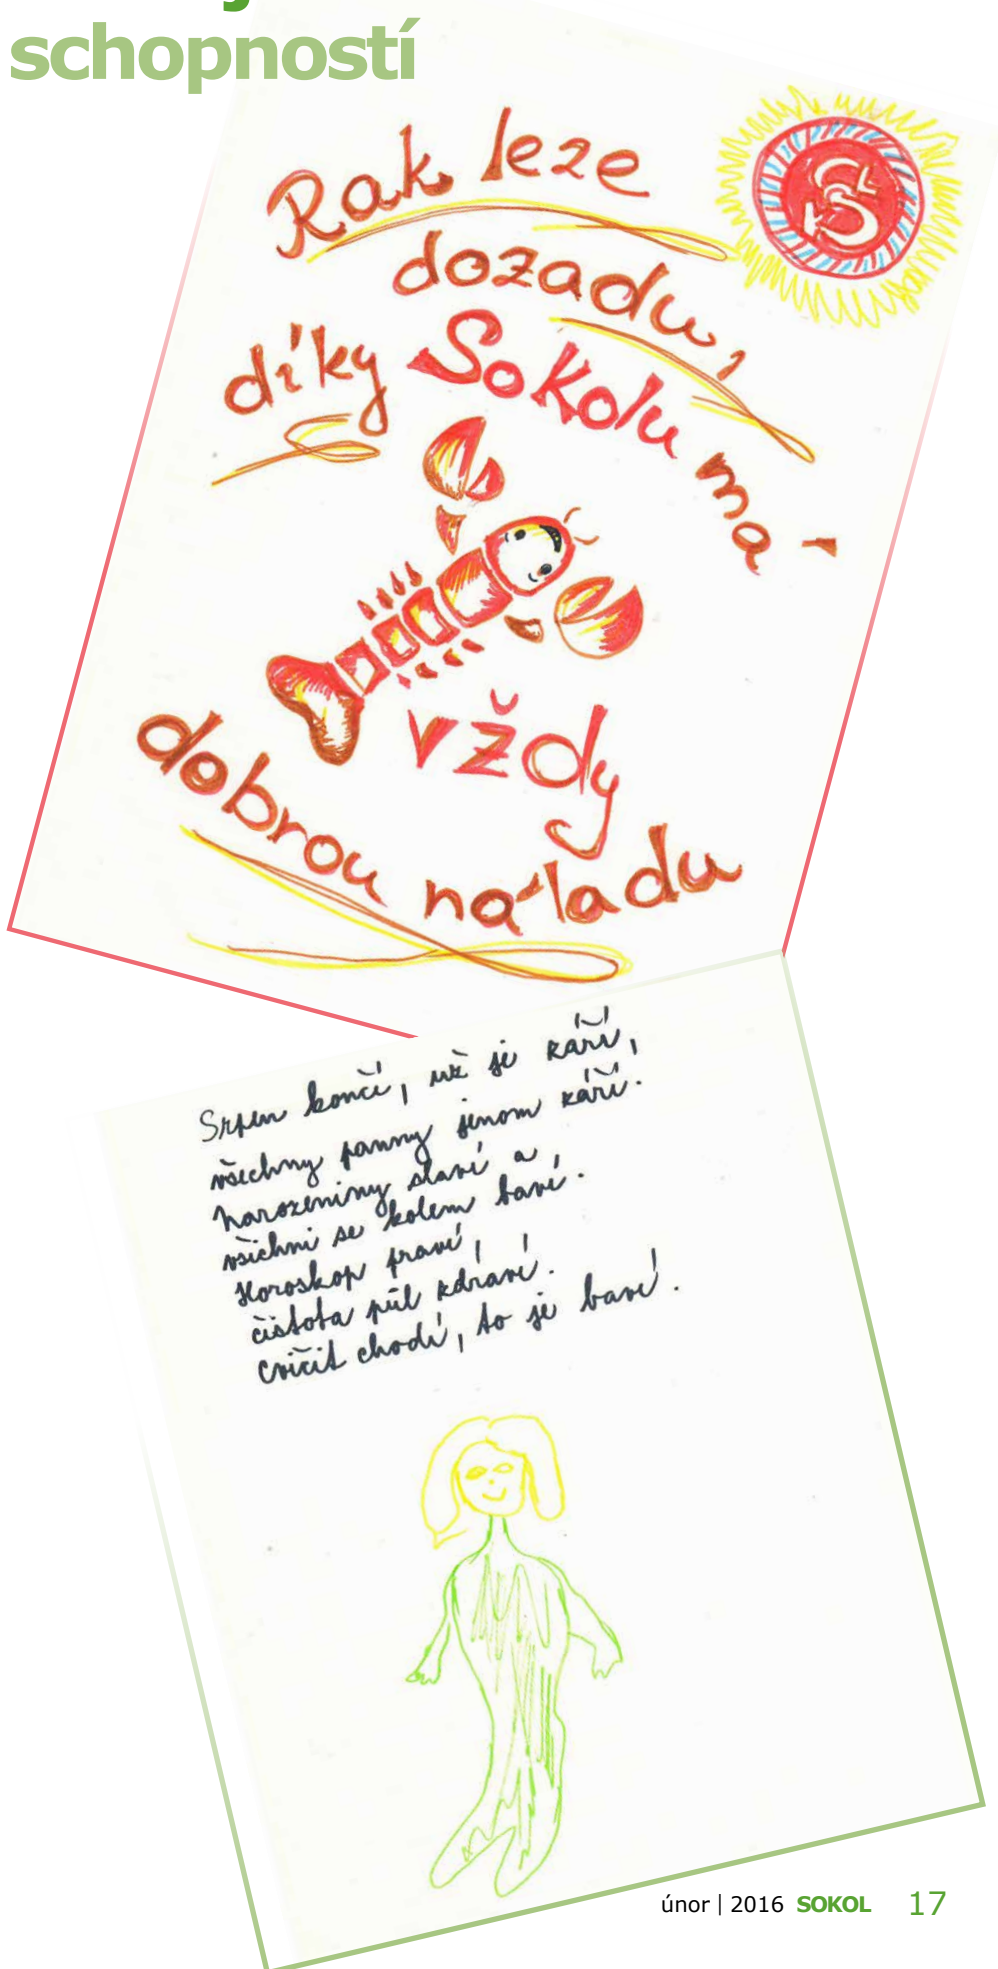 schopností
Rak leze
dozadu,
díky Sokolu má
vždy
dobrou náladu
Srpen končí, už je září,
všechny panny jenom září.
narozeniny slaví a
všichni se kolem baví.
Horoskop praví,
čistota půl zdraví.
Cvičit chodí, to je baví.
únor | 2016 SOKOL 17